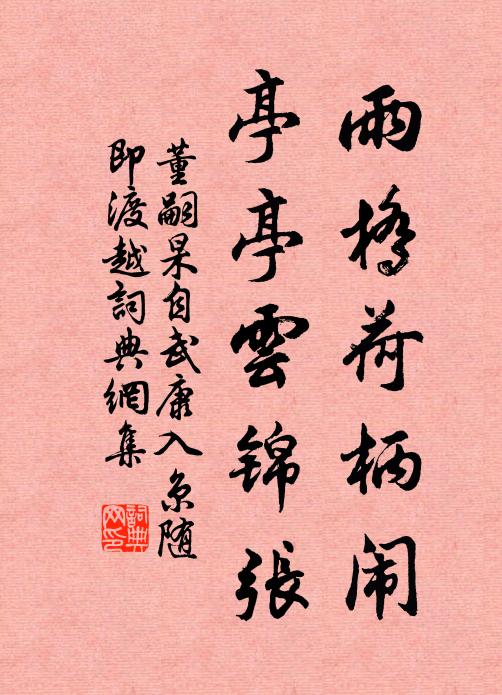 雨橋荷柄闹
亭亭雲錦張
董嗣杲自武康入京随
即渡越詞典網集
詞典网印